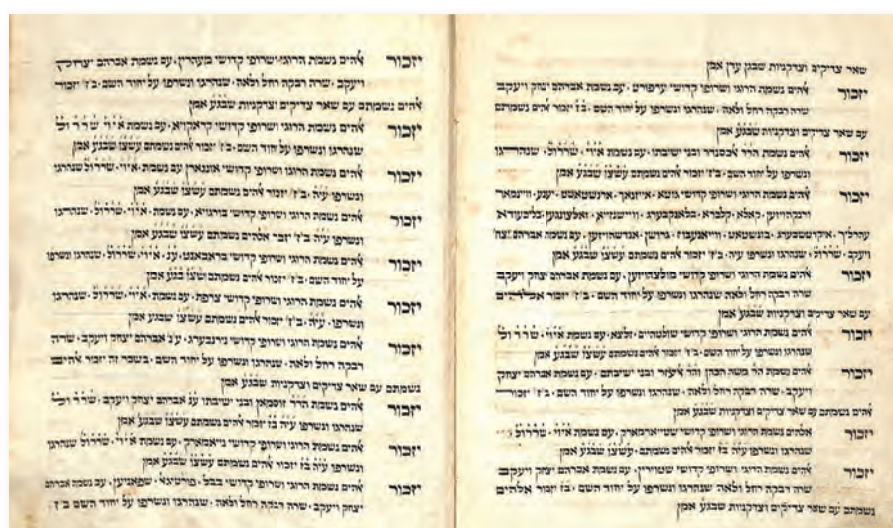 שאר צדיקים וצדקניות שבגן עדן אמן
יזכור אלהים נשמת הרוגי ושרופי קדושי ערפורט · עם נשמת אברהם יצחק ויעקב
שרה רבקה רחל ולאה · שנהרגו ונשרפו על יחוד השם · בז יזכור אלהים נשמתם
עם שאר צדיקים וצדקניות שבגע אמן
יזכור אלהים נשמת הרר אלכסנדר ובני ישיבתו · עם נשמת איוי · שררול · שנהרגו
ונשרפו על יחוד השם · בז יזכור אלהים נשמתם עשצו שבגע אמן
יזכור אלהים נשמת הרוגי ושרופי קדושי גוטא · אייזנאך · ארנשטאט · יענע ·
ויעקב · שררול · שנהרגו ונשרפו עיה · בז יזכור אלהים נשמתם עשצו שבגע אמן
יזכור אלהים נשמת הרוגי ושרופי קדושי עם נשמת אברהם יצחק ויעקב
שרה רבקה רחל ולאה שנהרגו ונשרפו על יחוד השם · בז יזכור אלהים
עם שאר צדיקים וצדקניות שבגע אמן
יזכור אלהים נשמת הרוגי ושרופי קדושי זלצא · עם נשמת איוי · שררול
שנהרגו ונשרפו על יחוד השם · בז יזכור אלהים נשמתם עשצו שבגע אמן
יזכור אלהים נשמת הרר משה הכהן והרר ובני ישיבתם · עם נשמת אברהם יצחק
ויעקב · שרה רבקה רחל ולאה · שנהרגו ונשרפו על יחוד השם · בז יזכור
אלהים נשמתם עם שאר צדיקים וצדקניות שבגע אמן
יזכור אלהים נשמת הרוגי ושרופי קדושי שטייארמארק · עם נשמת איוי · שררול
שנהרגו ונשרפו עיה בז יזכור אלהים נשמתם · עשצו שבגע אמן
יזכור אלהים נשמת הרוגי ושרופי קדושי · עם נשמת אברהם יצחק ויעקב
שרה רבקה רחל ולאה · שנהרגו ונשרפו על יחוד השם · בז יזכור אלהים
נשמתם עם שאר צדיקים וצדקניות שבגע אמן
יזכור אלהים נשמת הרוגי ושרופי קדושי מעהרין · עם נשמת אברהם יצחק
ויעקב · שרה רבקה רחל ולאה · שנהרגו ונשרפו על יחוד השם · בז יזכור
אלהים נשמתם עם שאר צדיקים וצדקניות שבגע אמן
יזכור אלהים נשמת הרוגי ושרופי קדושי קראקויא · עם נשמת איוי שררול
שנהרגו ונשרפו על יחוד השם · בז יזכור אלהים נשמתם עשצו שבגע אמן
יזכור אלהים נשמת הרוגי ושרופי קדושי אונגארן עם נשמת · איוי · שררול שנהרגו
ונשרפו עיה · בז יזכור אלהים נשמתם עשצו שבגע אמן
יזכור אלהים נשמת הרוגי ושרופי קדושי בורגויא · עם נשמת · איוי · שררול · שנהרגו
ונשרפו עיה בז יזכור אלהים נשמתם עשצו שבגע אמן
יזכור אלהים נשמת הרוגי ושרופי קדושי בראבאנט · ענ · איוי · שררול · שנהרגו ונשרפו
על יחוד השם · בז יזכור אלהים נשמתם עשצו בגע אמן
יזכור אלהים נשמת הרוגי ושרופי קדושי צרפת · עם נשמת · איוי · שררול · שנהרגו
ונשרפו · עיה · בז יזכור אלהים נשמתם עשצו שבגע אמן
יזכור אלהים נשמת הרוגי ושרופי קדושי נירנבערג · ענ אברהם יצחק ויעקב · שרה
רבקה רחל ולאה · שנהרגו ונשרפו על יחוד השם · בשכר זה יזכור אלהים
נשמתם עם שאר צדיקים וצדקניות שבגע אמן
יזכור אלהים נשמת הרר זוסמאן ובני ישיבתו ענ אברהם יצחק ויעקב · שררול
שנהרגו ונשרפו עיה בז יזכור אלהים נשמתם עשצו שבגע אמן
יזכור אלהים נשמת הרוגי ושרופי קדושי ניאמארק · עם נשמת איוי · שררול שנהרגו
ונשרפו עיה בז יזכור אלהים נשמתם עשצו שבגע אמן
יזכור אלהים נשמת הרוגי ושרופי קדושי בבל · פורטיגאל · שפאניען · עם נשמת אברהם
יצחק ויעקב · שרה רבקה רחל ולאה · שנהרגו ונשרפו על יחוד השם בז